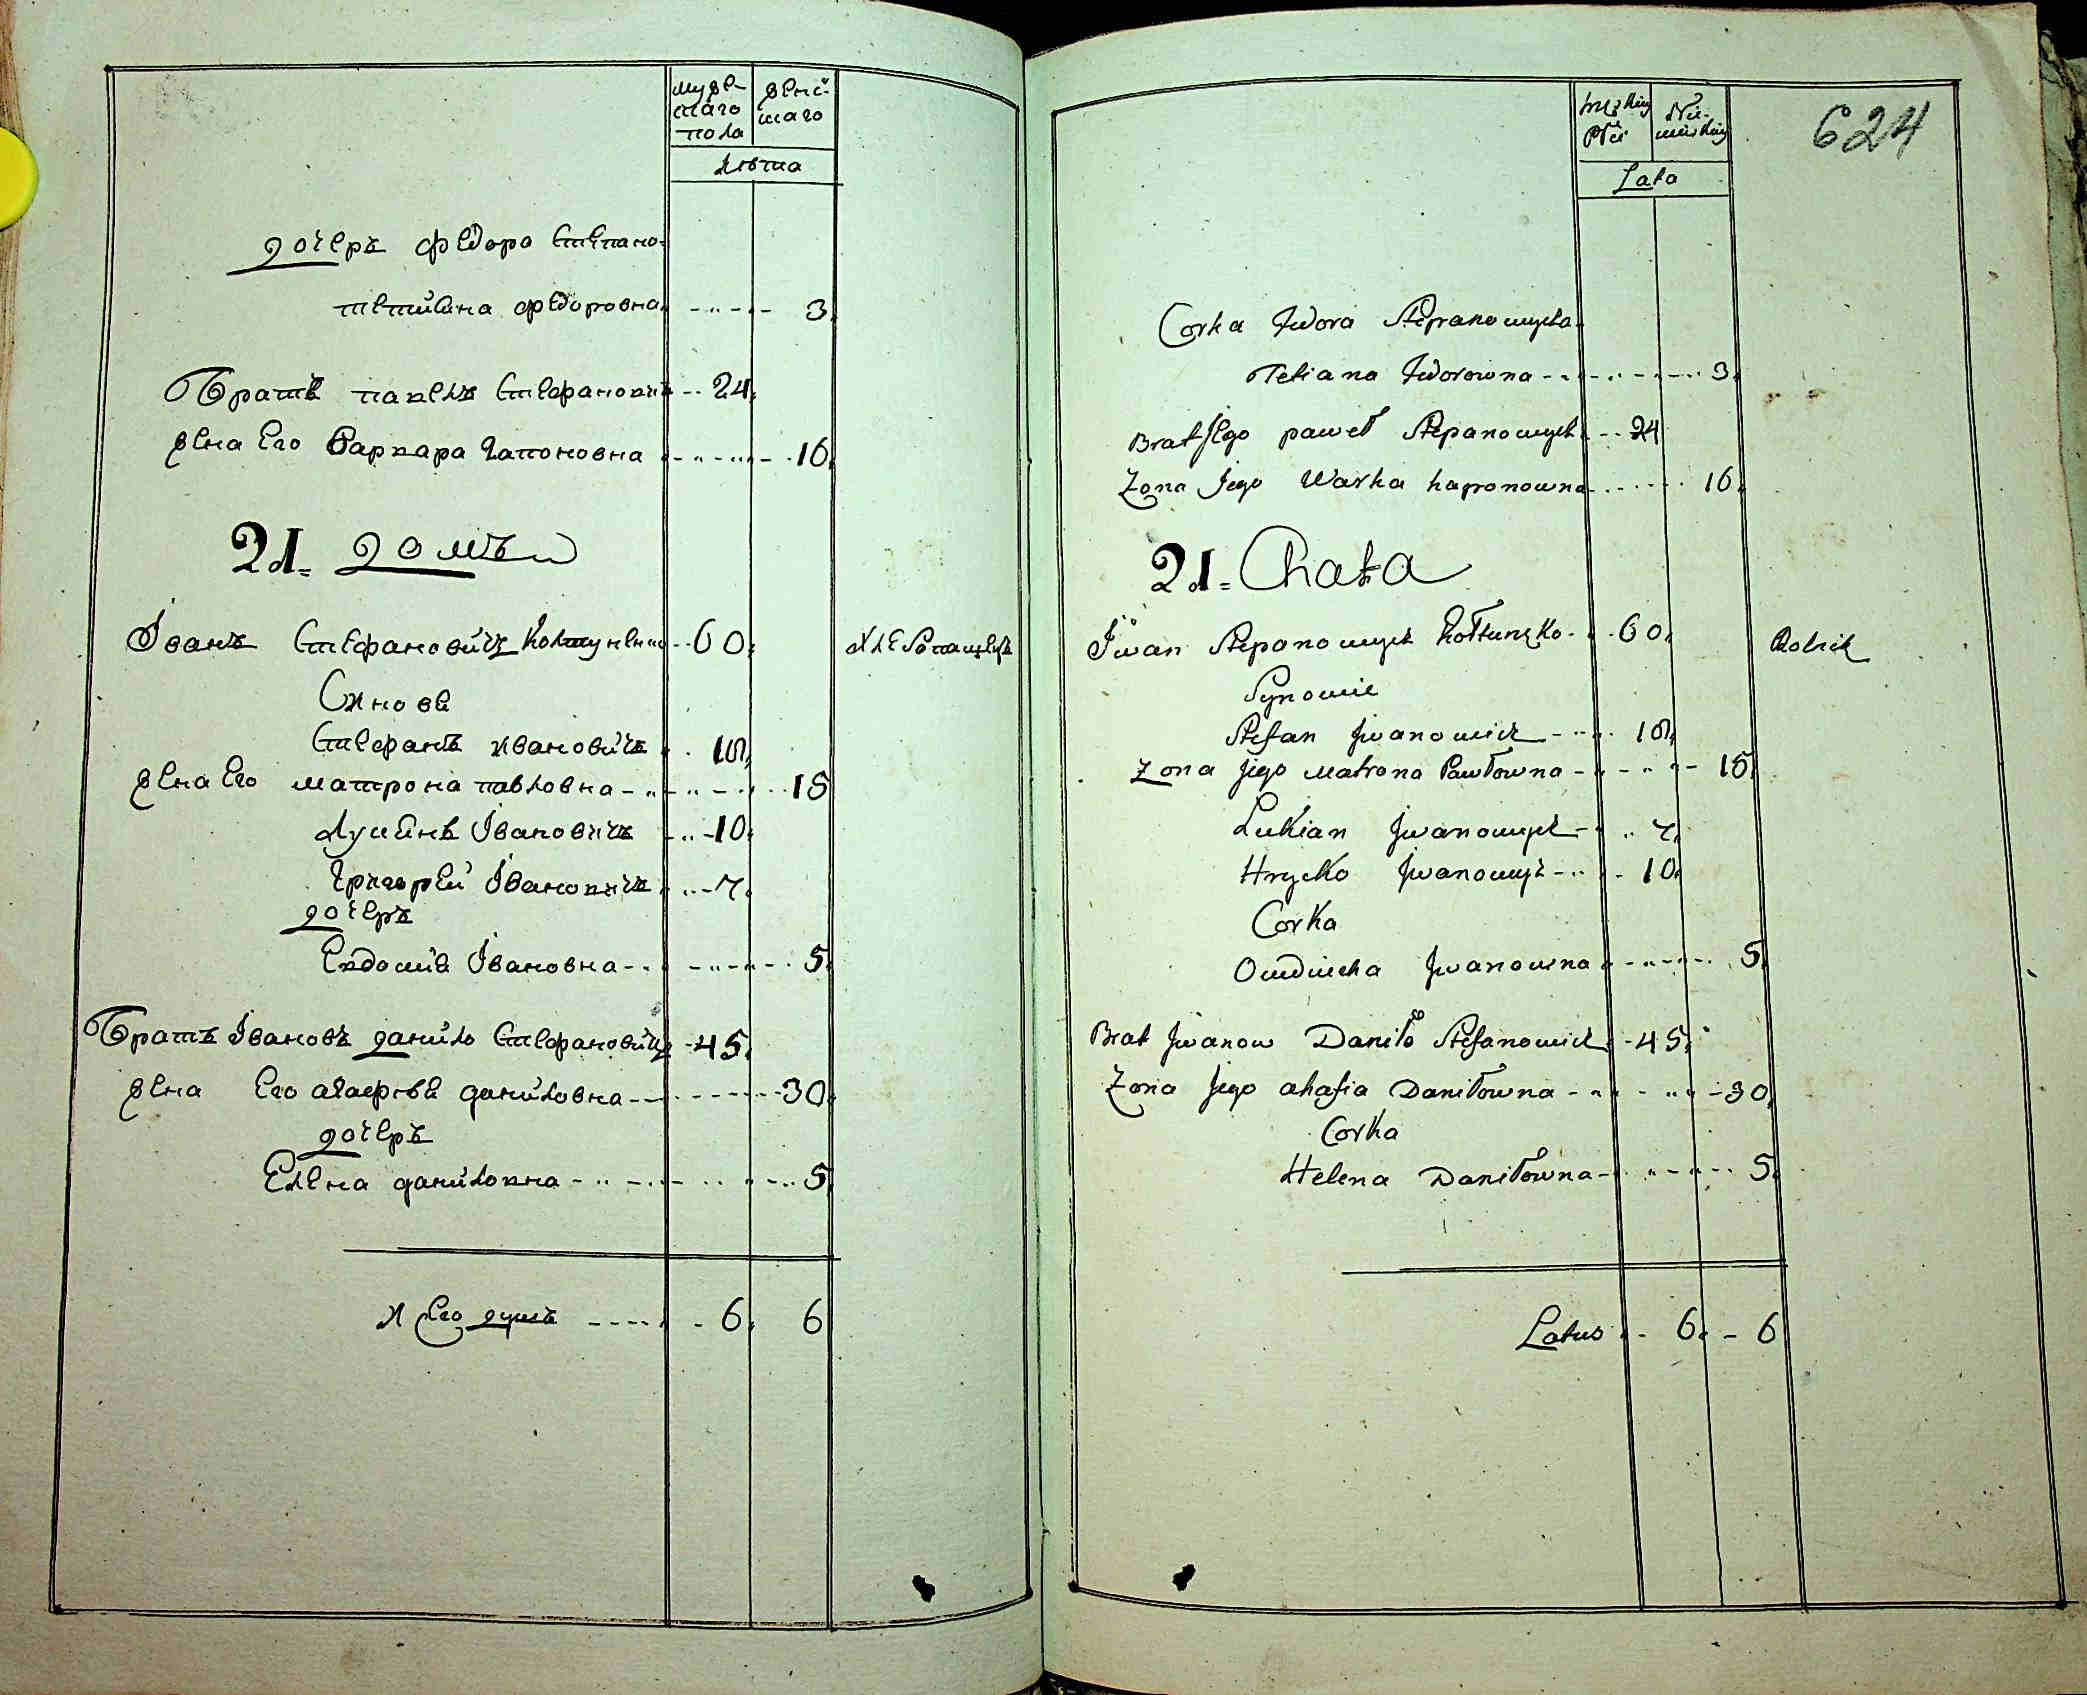 мужe-
скаго
пола
женс-
каго
Лѣта
дочеръ федора Степано-
тетиана федоровна 3
Братъ павелъ Стефанович 24
жена Его Варвара Гапоновна 16
21. домъ
Іванъ Стефановичъ Колтуненко 60 Хлебопашецъ
Синове
Стефанъ ивановичъ 18
жена Его матрона павловна 15
Лукиянъ Івановичъ 10
григорей Івановичъ 7
дочеръ
Евдокия Івановна 5
Братъ Івановъ данило Стефановичъ 45
жена Его агафия даниловна 30
дочеръ
Елена даниловна 5
И Его душъ 6 6
męzkiej
płci
Nie-
wieskiej
Lata
624
Corka Fedora Stepanowycha
Tetiana Fedorowna 3
Brat Jego paweł Stepanowych 24
Zona Jego Warka haponowna 16
21. Chata
Jwan Stepanowych Kołtunęko 60 Rolnik
Synowie
Stefan Jwanowich 18
Zona jego Matrona Pawłowna 15
Lukian Jwanowych 7
Hrycko Jwanowych 10
Corka
Owdiucha Jwanowna 5
Brat Jwanow Daniło Stefanowich 45
Zona Jego ahafia Daniłowna 30
Corka
Helena Daniłowna 5
Latus 6 6